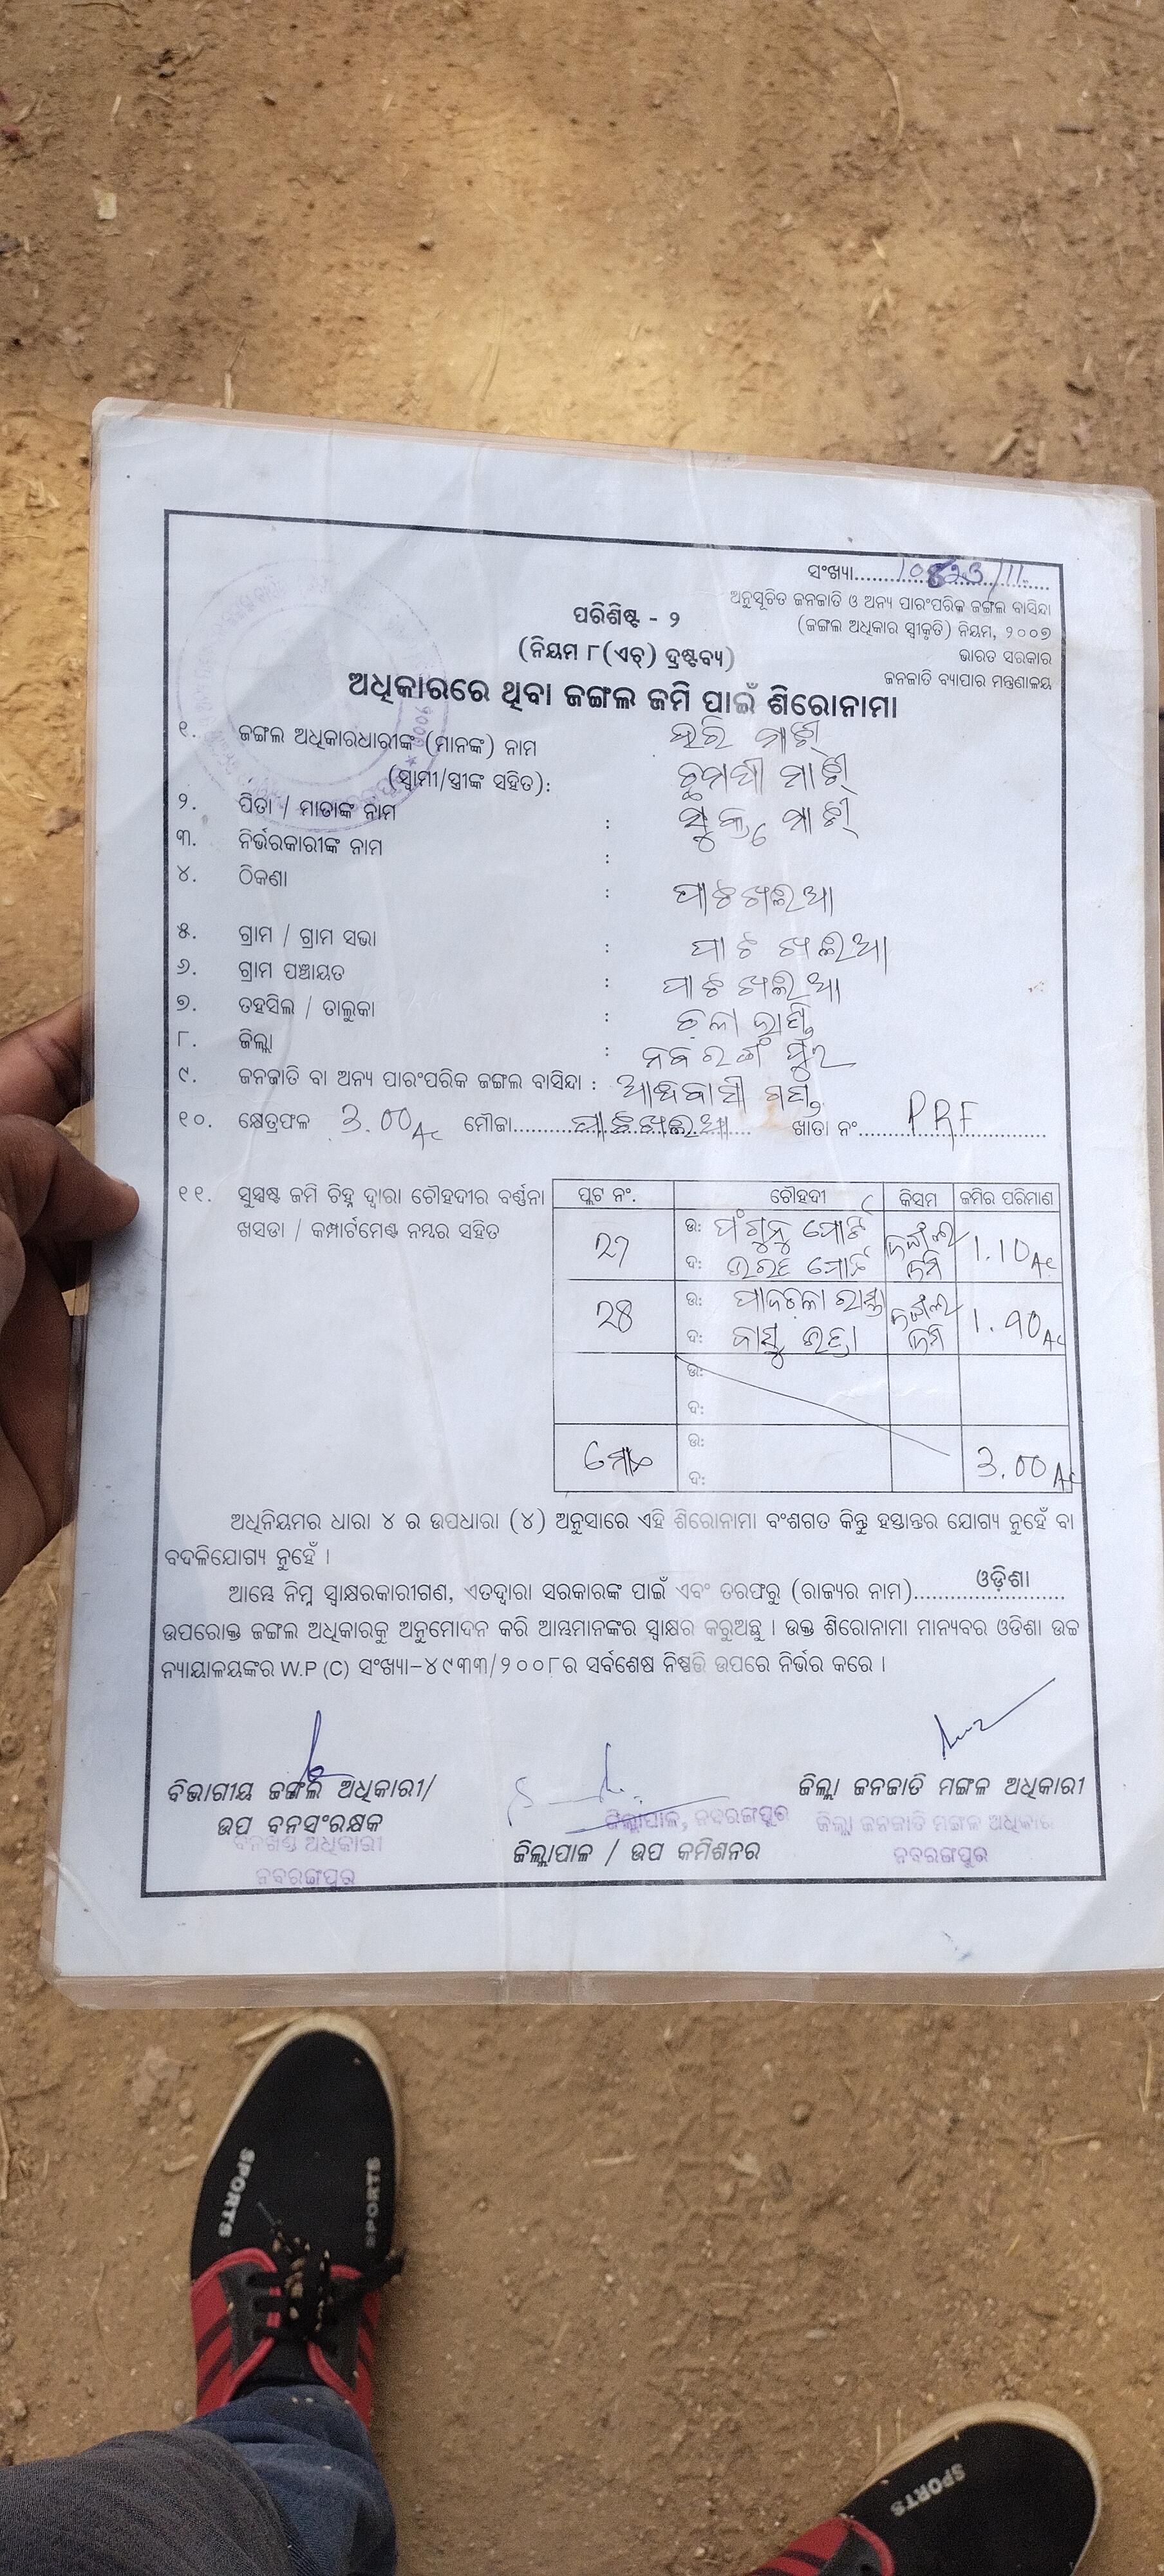 ସଂଖ୍ୟା....................
ଅନୁସୂଚିତ ଜନଜାତି ଓ ଅନ୍ୟ ପାରଂପରିକ ଜଙ୍ଗଲ ବାସିନ୍ଦା
(ଜଙ୍ଗଲ ଅଧିକାର ସ୍ୱୀକୃତି) ନିୟମ, ୨୦୦୭
ଭାରତ ସରକାର
ଜନଜାତି ବ୍ୟାପାର ମନ୍ତ୍ରଣାଳୟ
ପରିଶିଷ୍ଟ - ୨
(ନିୟମ ୮(ଏଚ୍) ଦ୍ରଷ୍ଟବ୍ୟ)
ଅଧିକାରରେ ଥିବା ଜଙ୍ଗଲ ଜମି ପାଇଁ ଶିରୋନାମା
୧. ଜଙ୍ଗଲ ଅଧିକାରଧାରୀଙ୍କ (ମାନଙ୍କ) ନାମ ହରି ମାଝୀ
(ସ୍ୱାମୀ/ସ୍ତ୍ରୀଙ୍କ ସହିତ): ମାଝୀ
୨. ପିତା / ମାତାଙ୍କ ନାମ : ମାଝୀ
୩. ନିର୍ଭରକାରୀଙ୍କ ନାମ :
୪. ଠିକଣା : ପାଟଖଲିଆ
୫. ଗ୍ରାମ / ଗ୍ରାମ ସଭା : ପାଟଖଲିଆ
୬. ଗ୍ରାମ ପଞ୍ଚାୟତ : ପାଟଖଲିଆ
୭. ତହସିଲ / ତାଲୁକା :
୮. ଜିଲ୍ଲା : ନବରଙ୍ଗପୁର
୯. ଜନଜାତି ବା ଅନ୍ୟ ପାରଂପରିକ ଜଙ୍ଗଲ ବାସିନ୍ଦା :
୧୦. କ୍ଷେତ୍ରଫଳ 3.00Ac ମୌଜା..........ପାଟଖଲିଆ.......... ଖାତା ନଂ..........PRF..........
୧୧. ସୁସ୍ପଷ୍ଟ ଜମି ଚିହ୍ନ ଦ୍ୱାରା ଚୌହଦୀର ବର୍ଣ୍ଣନା
ଖସଡା / କମ୍ପାର୍ଟମେଣ୍ଟ ନମ୍ବର ସହିତ
ପ୍ଲଟ ନଂ. ଚୌହଦୀ କିସମ ଜମିର ପରିମାଣ
27 ଉ: ଜଙ୍ଗଲ ଜମି 1.10Ac
ଦ:
28 ଉ: ରାସ୍ତା ଜଙ୍ଗଲ ଜମି 1.90Ac
ଦ:
ଉ:
ଦ:
ମୋଟ ଉ: 3.00Ac
ଦ:
ଅଧିନିୟମର ଧାରା ୪ ର ଉପଧାରା (୪) ଅନୁସାରେ ଏହି ଶିରୋନାମା ବଂଶଗତ କିନ୍ତୁ ହସ୍ତାନ୍ତର ଯୋଗ୍ୟ ନୁହେଁ ବା
ବଦଳିଯୋଗ୍ୟ ନୁହେଁ ।
ଆମ୍ଭେ ନିମ୍ନ ସ୍ୱାକ୍ଷରକାରୀଗଣ, ଏତଦ୍ଦ୍ୱାରା ସରକାରଙ୍କ ପାଇଁ ଏବଂ ତରଫରୁ (ରାଜ୍ୟର ନାମ)........ଓଡ଼ିଶା........
ଉପରୋକ୍ତ ଜଙ୍ଗଲ ଅଧିକାରକୁ ଅନୁମୋଦନ କରି ଆମ୍ଭମାନଙ୍କର ସ୍ୱାକ୍ଷର କରୁଅଛୁ । ଉକ୍ତ ଶିରୋନାମା ମାନ୍ୟବର ଓଡିଶା ଉଚ୍ଚ
ନ୍ୟାୟାଳୟଙ୍କର W.P (C) ସଂଖ୍ୟା-୪୯୩୩/୨୦୦୮ର ସର୍ବଶେଷ ନିଷ୍ପତ୍ତି ଉପରେ ନିର୍ଭର କରେ ।
ବିଭାଗୀୟ ଜଙ୍ଗଲ ଅଧିକାରୀ/
ଉପ ବନସଂରକ୍ଷକ
ବନଖଣ୍ଡ ଅଧିକାରୀ
ନବରଙ୍ଗପୁର
ଜିଲ୍ଲାପାଳ, ନବରଙ୍ଗପୁର
ଜିଲ୍ଲାପାଳ / ଉପ କମିଶନର
ଜିଲ୍ଲା ଜନଜାତି ମଙ୍ଗଳ ଅଧିକାରୀ
ଜିଲ୍ଲା ଜନଜାତି ମଙ୍ଗଳ ଅଧିକାରୀ
ନବରଙ୍ଗପୁର
SPORTS
SPORTS
SPORTS